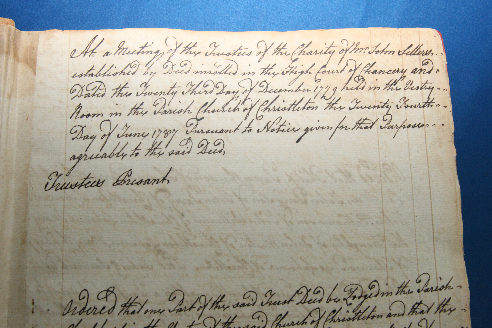 At a Meeting of the Trustees of the Charity of Mr. John Sellers
established by Deed inrolled in the High Court of Chancery and
Dated the Twenty Third Day of December 1779 held in the Vestry
Room in the Parish Church of Christleton the Twenty Fourth
Day of June 1787 Pursuant to Notice given for that Purpose
agreeably to the said Deed
Trustees Presant
Ordered that one Part of the said Trust Deed be Lodged in the Parish
the said Church of Christleton and that the